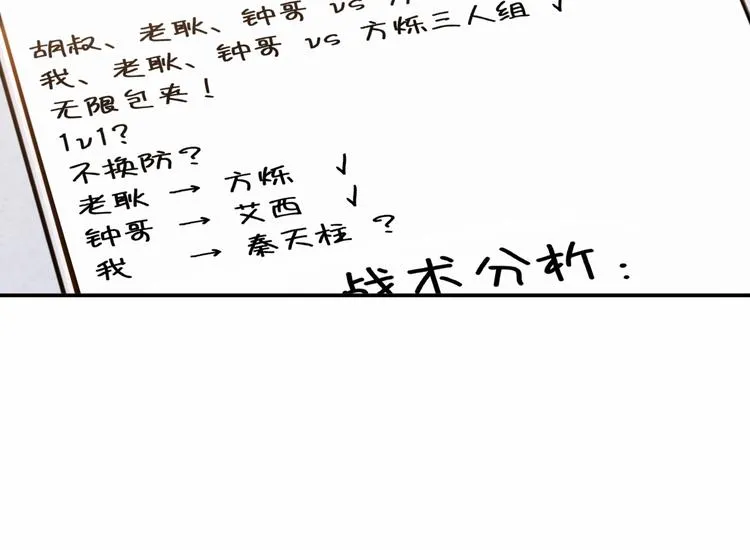 胡叔、老耿、钟哥 vs
我、老耿、钟哥 vs 方烁三人组 √
无限包夹!
1v1?
不换防?
老耿 → 方烁 √
钟哥 → 艾西 √
我 → 秦天柱 ?
战术分析: